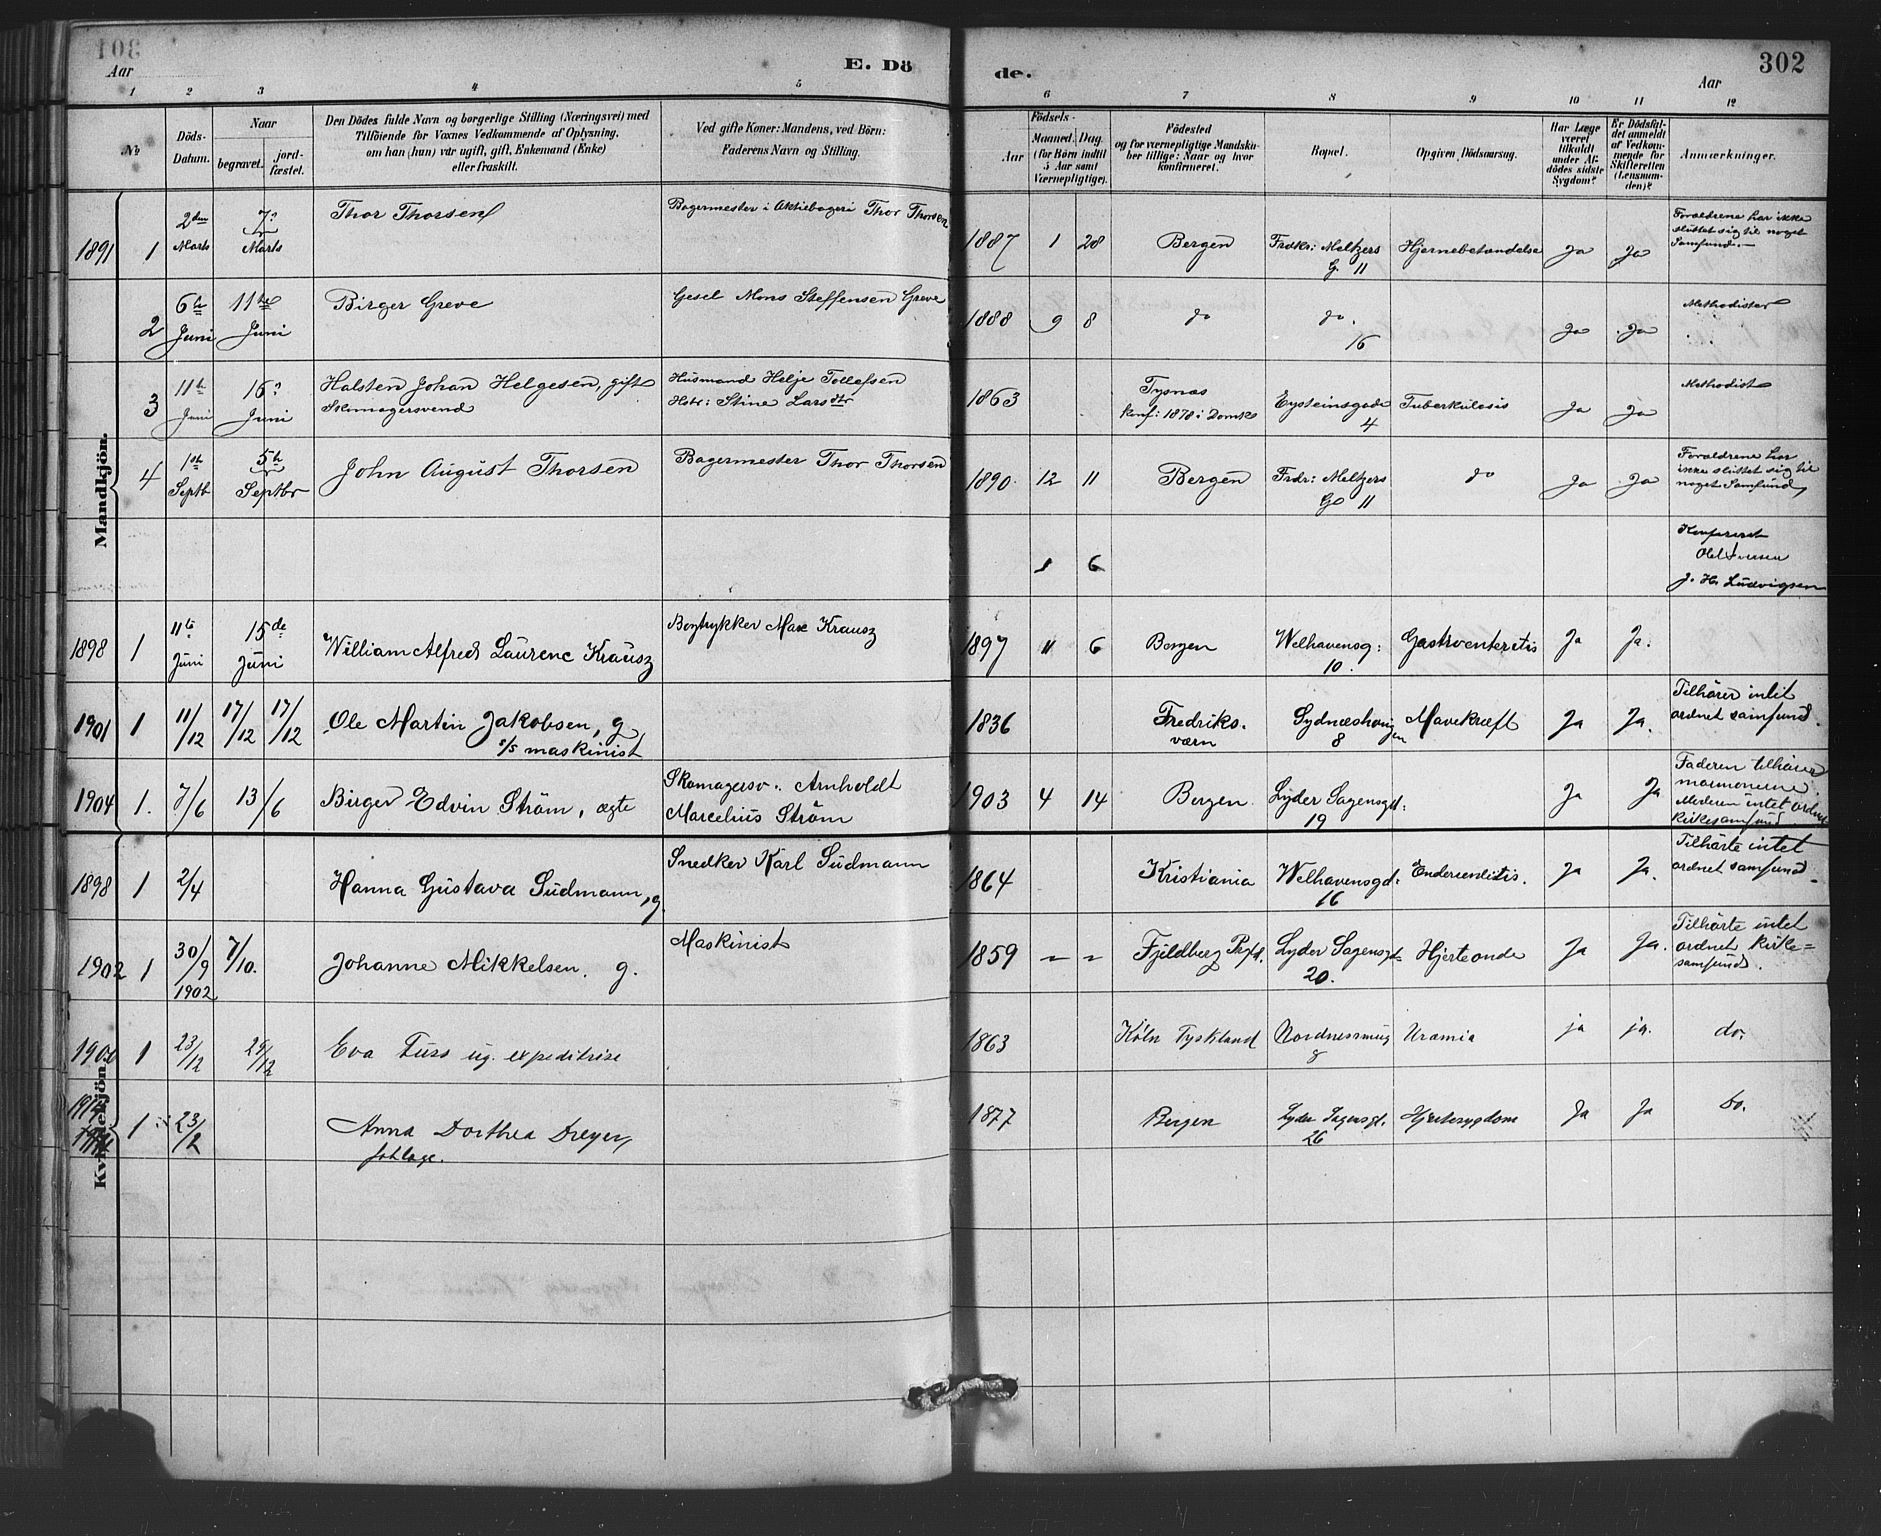 E. Dö de.
302
Aar Aar
1 2 3 4 5 6 7 8 9 10 11 12
№
Döds-Datum.
Naar
begravet.
jord-fæstet.
Den Dödes fulde Navn og borgerlige Stilling (Næringsvei) med
Tilföiende for Voxnes Vedkommende af Oplysning,
om han (hun) var ugift, gift, Enkemand (Enke)
eller fraskilt.
Ved gifte Koner: Mandens, ved Börn:
Faderens Navn og Stilling.
Födsels-
Aar
Maaned. Dag.
(for Börn indtil
5 Aar samt
Værnepligtige).
Födested
og for værnepligtige Mandska-
ber tillige: Naar og hvor
konfirmeret.
Bopæl.
Opgiven Dödsaarsag.
Har Læge
været
tilkaldt
under Af-
dödes sidste
Sygdom?
Er Dödsfal-
det anmeldt
af Vedkom-
mende for
Skifteretten
(Lensman-
den)?
Anmærkninger.
Mandkjön.
1891 1 2den Marts 7de Marts Thor Thorsen Bagermester i Aktiebageri Thor Thorsen 1887 1 28 Bergen Fredr: Meltzers G. 11 Hjernebetændelse Ja Ja Forældrene har ikke sluttet sig til noget Samfund.
2 6te Juni 11te Juni Birger Greve Gesel Mons Steffensen Greve 1888 9 8 do do. 16 Ja Ja Methodister
3 11te Juni 16de Juni Halsten Johan Helgesen, gift Skomagersvend Husmand Helje Tollefsen Hstr: Stine Larsdtr 1863 Tysnæs konf: 1878 i Domk. Eysteinsgade 4 Tuberkulosis Ja Ja Methodist
4 1ste Septb 5te Septbr John August Thorsen Bagermester Thor Thorsen 1890 12 11 Bergen Fredr: Meltzers G 11 do Ja Ja Forældrene har ikke sluttet sig til noget Samfund
1 6 Konfereret
J. H. Ludvigsen
1898 1 11te Juni 15de Juni William Alfred Laurenc Krausz Bogtrykker Max Krausz 1897 11 6 Bergen Welhavensg: 10. Gastroenteritis Ja Ja. 
1901 1 11/12 17/12 17/12 Ole Martin Jakobsen, g s/s maskinist 1836 Fredriks-værn Sydnæshougen 8 Mavekræft Ja Ja. Tilhører intet ordnet samfund.
1904 1. 7/6 13/6 Birger Edvin Ström, ægte Skomagersv. Arnholdt Marcelius Ström 1903 4 14 Bergen Lyder Sagensgd: 19 Ja Ja Faderen tilhører mormonerne. Moderen intet ordnet kirkesamfund
Kvindekjön.
1898 1 2/4 Hanna Gustava Südmann, g. Snedker Karl Südmann 1864 Kristiania Welhavensgd: 16 Ja Ja. Tilhørte intet ordnet samfund.
1902 1 30/9 1902 7/10. Johanne Mikkelsen. g. Maskinist 1859 Fjeldberg Prgd. Lyder Sagensgd 20. Hjerteonde Ja Ja. Tilhørte intet ordnet kirke=samfund.
1 23/12 29/12 Eva Fuss ug. expeditrise 1863 Köln Tyskland Nordnessmug 8 Uræmia ja ja. do.
1 23/2 Anna Dorthea Dreyer, 1877 Bergen Lyder Sagensgt. 26 Hjertesygdom Ja Ja Do.